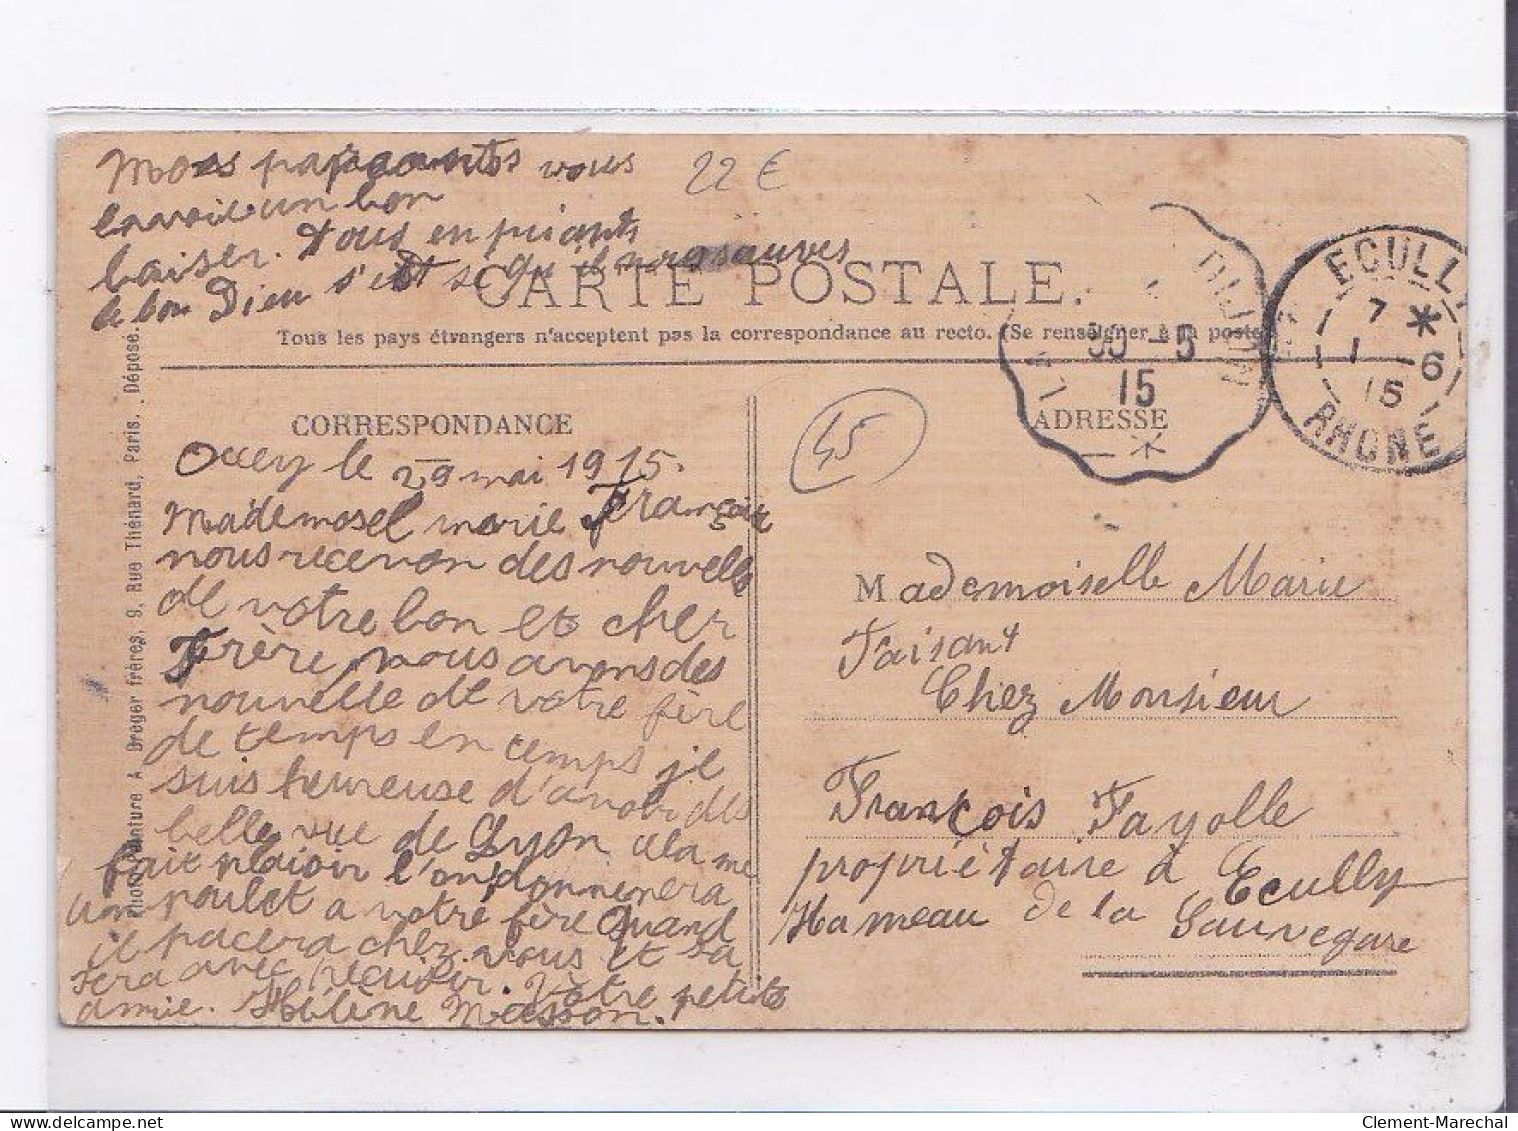 Mons parants vous
envoie un bon
baiser. tous en priants
le bon Dieu s'est se qu'il nous sauves
22 €
CARTE POSTALE.
Tous les pays étrangers n'acceptent pas la correspondance au recto. (Se renseigner à la poste)
30 - 5
15
ECULLY
7 *
1 - 6
15
RHONE
CORRESPONDANCE
45
ADRESSE
Occey le 29 mai 1915.
Mademosel marie François
nous recevon des nouvelle
de votre bon et cher
Frère, nous avons des
nouvelle de votre fère
de temps en temps je
suis heureuse d'avoir des
belle vue de Lyon cela me
fait plaisir l'on donnenera
un poulet a votre fère Quand
il pacera chez vous et sa
sera avec plaisir. Votre petite
amie. Hélène Masson.
Mademoiselle Marie
Faisant
Chez Monsieur
François Fayolle
propriétaire à Ecully
Hameau de la Sauvegare
Photo Peinture A. Dreger frères, 9, Rue Thénard, Paris. Déposé.
Clement-Marechal